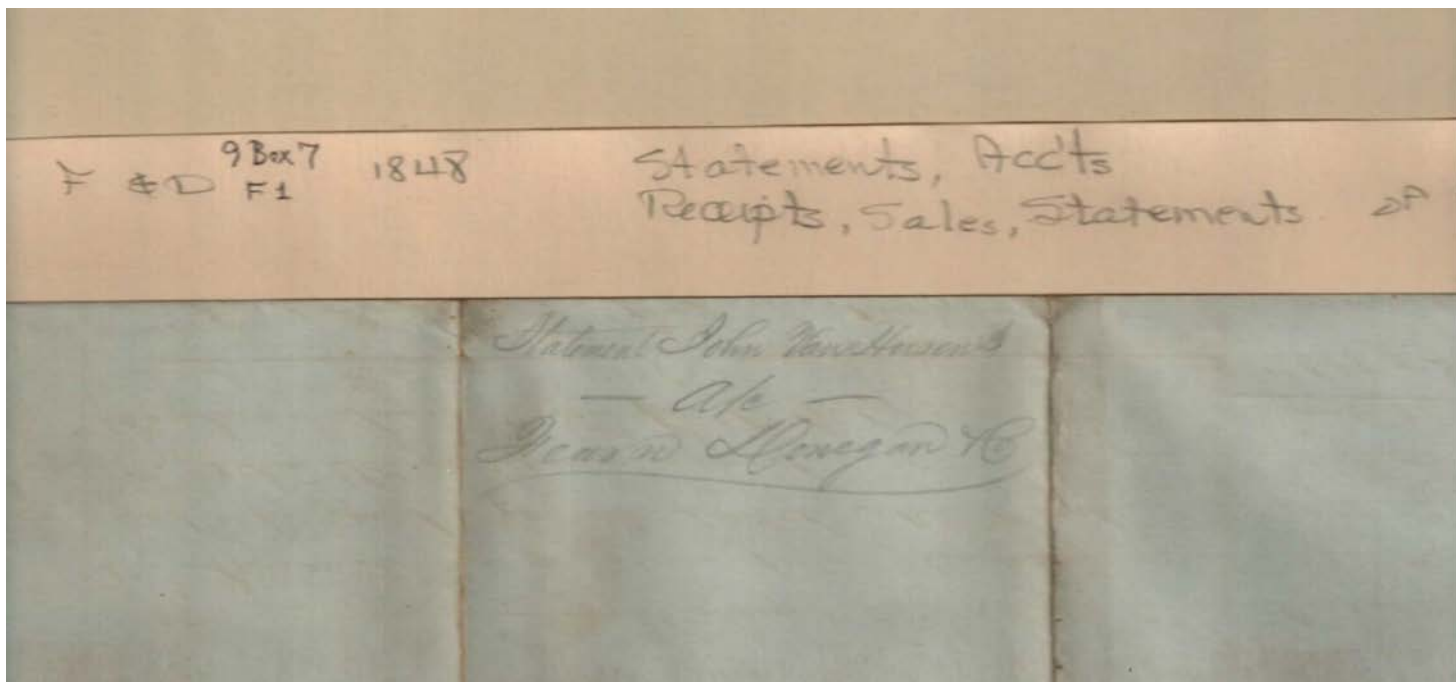 9 Box 7
F & D F1 1848 Statements, Acc'ts
Receipts, Sales, Statements
Statement John Van Hoosen's
— A/c —
Fearn Donegan & Co